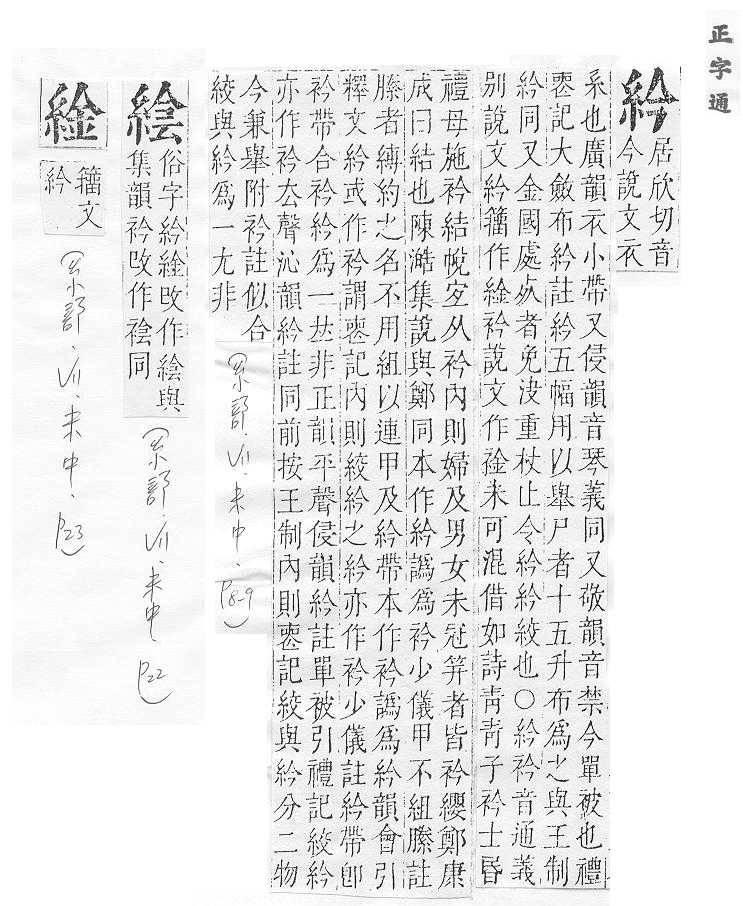 正字通
紟
居欣切音
今說文衣
系也廣韻衣小帶又侵韻音琴義同又敬韻音禁今單被也禮
喪記大斂布紟註紟五幅用以舉尸者十五升布爲之與王制
紟同又金國處次者免決重杖止令紟紟絞也○紟衿音通義
別說文紟籒作絵衿說文作䘳未可混借如詩靑靑子衿士昏
禮母施衿結帨宐从衿內則婦及男女未冠笄者皆衿纓鄭康
成曰結也陳澔集說與鄭同本作紟譌爲衿少儀甲不組縢註
縢者縳約之名不用組以連甲及紟帶本作衿譌爲紟韻會引
釋文紟或作衿謂喪記內則絞紟之紟亦作衿少儀註紟帶卽
衿帶合衿紟爲一𠀤非正韻平聲侵韻紟註單被引禮記絞紟
亦作衿去聲沁韻紟註同前按王制內則喪記絞與紟分二物
今兼舉附衿註似合
絞與紟爲一尢非
(糸部.VII.未中.P.8-9)
絵
俗字紟絵攺作絵與
集韻衿攺作䘳同
(糸部.VII.未中.P.22)
絵
籒文
紟
(糸部.VII.未中.P.23)